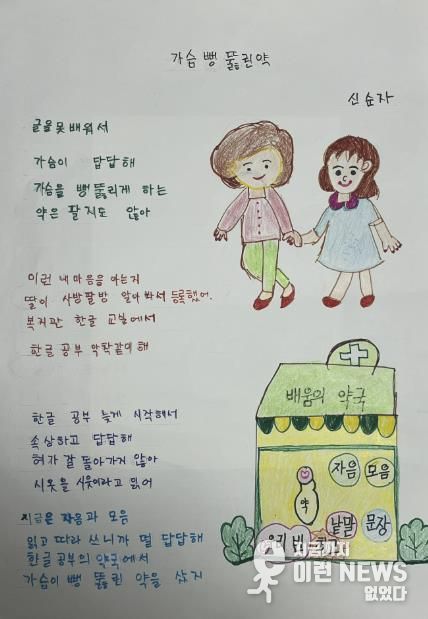 가슴 뻥 뚫린약
신순자
글을 못 배워서
가슴이 답답해
가슴을 뻥 뚫리게 하는
약은 팔지도 않아
이런 내 마음을 아는지
딸이 사방팔방 알아봐서 등록했어.
복지관 한글 교실에서
한글 공부 악착같이 해
한글 공부 늦게 시작해서
속상하고 답답해
혀가 잘 돌아가지 않아
시옷을 시읏이라고 읽어
지금은 자음과 모음
읽고 따라 쓰니까 덜 답답해
한글공부의 약국에서
가슴이 뻥 뚫린 약을 샀지
배움의 약국
자음 모음
약
낱말 문장
e 지금까지
이런 NEWS
없었다